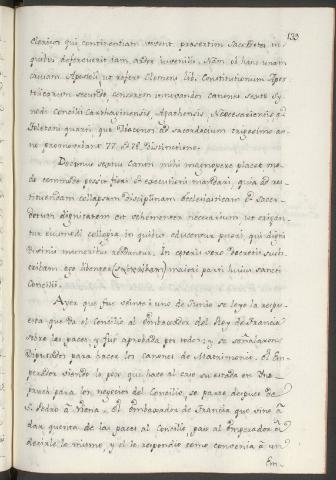 133
Clericos qui continentiam vovent, præsertim Sacerdotes in
quibus defervuerit iam ardor iuvenilis. Nam ob hanc unam
causam Apostoli, ut refert Clemens lib. Constitutionum Apos-
tolicarum secundo, censerem innovandos canones sexte Sy-
nodi Concilii Carthaginensis, Agathensis, Neocesariensis, et
Toletani quarti, que Diaconos ad sacerdocium trigesimo an-
no promoveri ant 77. et 78. Distinctione.
Decimus septus Canon mihi magnopere placet mo-
do commode possit fieri et executioni mandari, quia ad res-
tituendam collapsam disciplinam ecclesiasticam et sacer-
dotum dignitatem est vehementer necessarium ut erigan-
tur eiusmodi collegia in quibus educentur pueri, qui digni
Divinis muneribus reddantur. In ceteris vero Decretis subs-
cribam ego libenter (subscribam) maiori parti huius sancti
Concilii.
Ayer que fue veinte i uno de Junio se leyo la respu-
esta que da el Concilio al embaxador del Rey de Francia
sobre las paces, y fue aprobada por todos; y se señalaron
Diputados para hacer los canones de Matrimonio. El Em-
perador viendo lo poco que hace al caso su estada en Yns-
pruch para los negocios del Concilio, se parte despues de
S. Pedro à Viena. El embaxador de Francia que vino à
dar quenta de las paces al Concilio, pasa al Emperador à
decirle lo mismo, y el le respondio como convenia à un
Em-